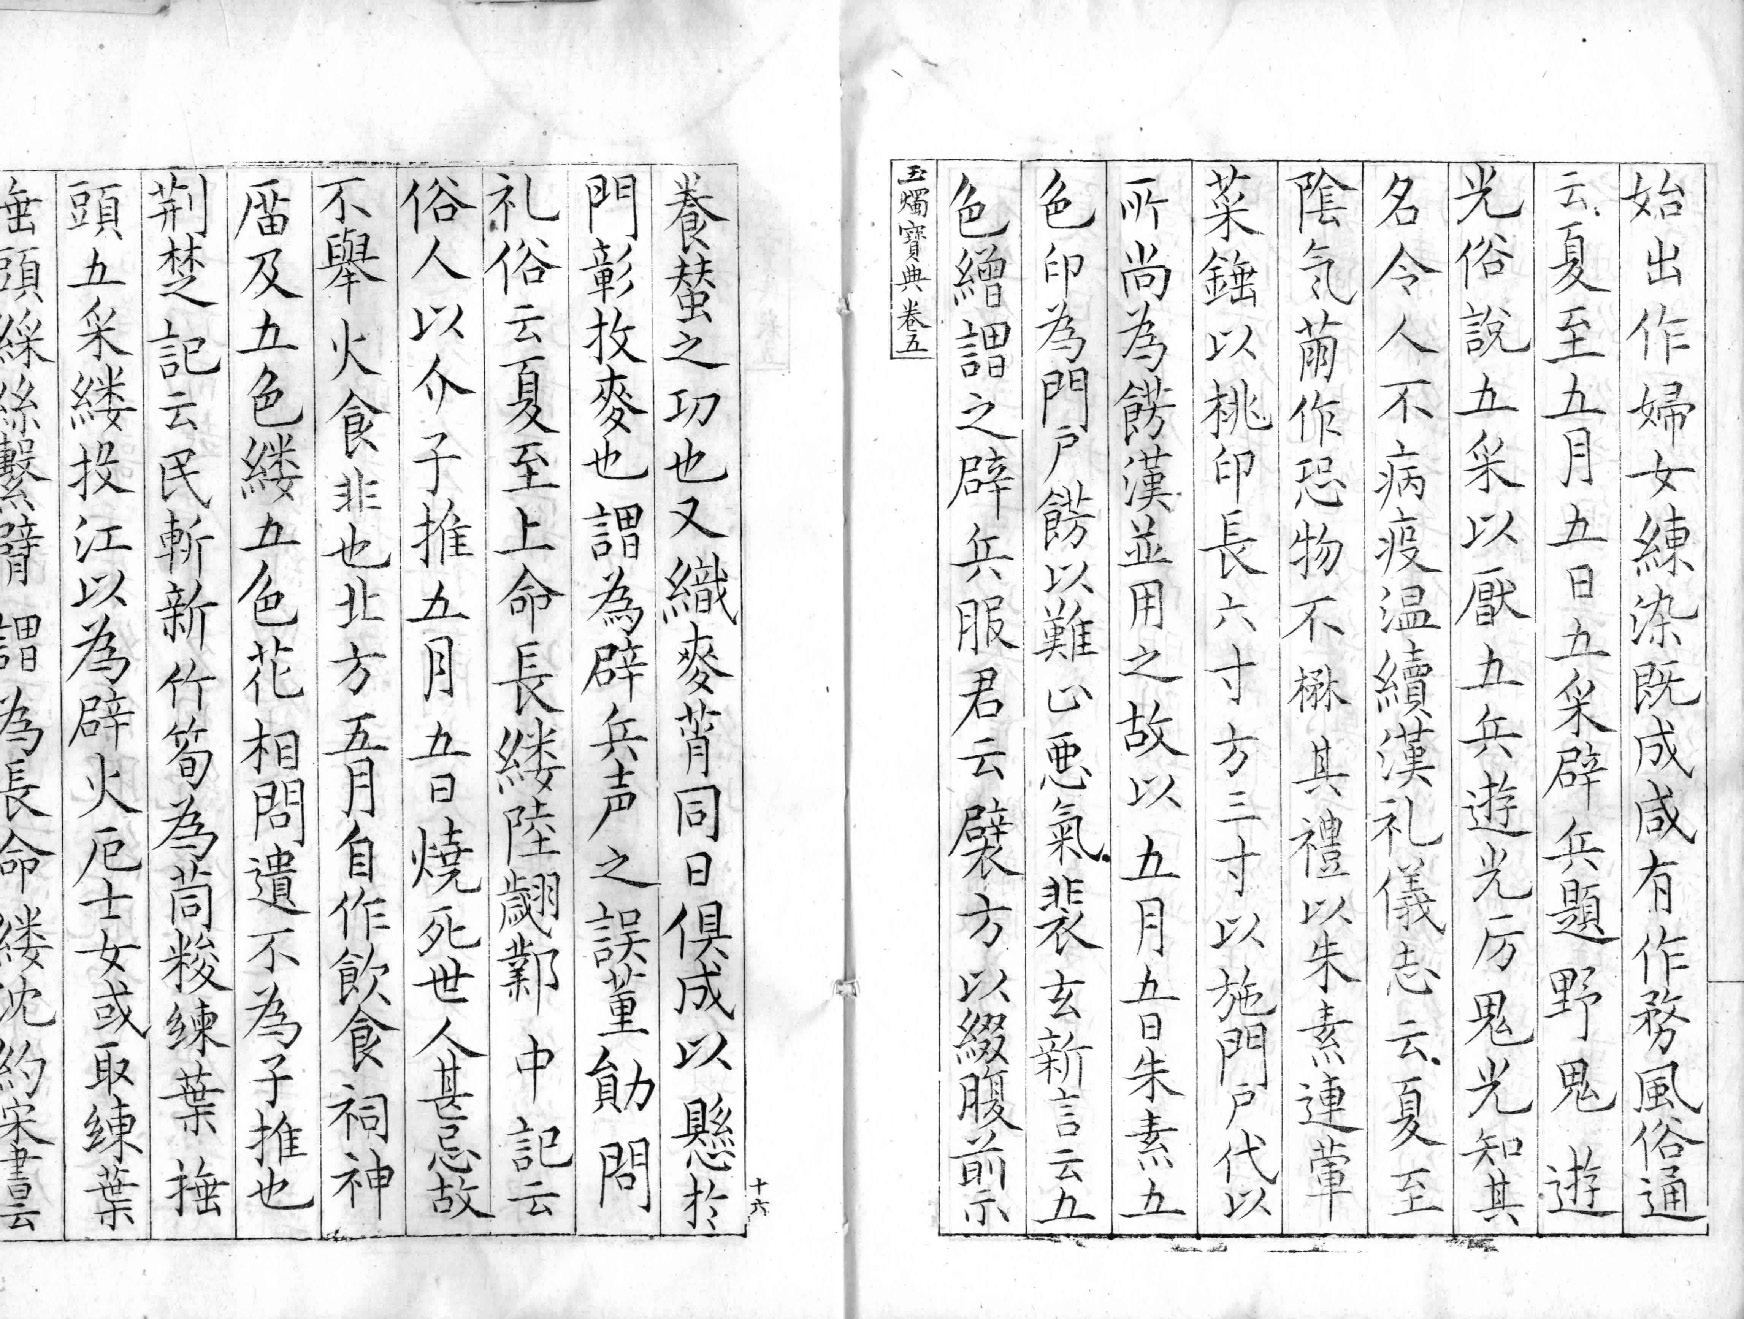 始出作婦女練染既成咸有作務風俗通
云夏至五月五日五采辟兵題野鬼遊
光俗說五采以厭五兵遊光厉鬼光知其
名令人不病疫温續漢礼儀志云夏至
陰氣萠作恐物不楙其禮以朱素連葷
菜錘以桃印長六寸方三寸以施門戶代以
所尚為餝漢並用之故以五月五日朱素五
色印為門戶餝以難止悪氣裴玄新言云五
色繒謂之辟兵服君云襞方以綴腹前示
玉燭寶典卷五
養蝅之功也又織麥䓘同日俱成以懸於
門彰收麥也謂為辟兵声之誤董勛問
礼俗云夏至上命長縷陸翽鄴中記云
俗人以介子推五月五日燒死世人甚忌故
不舉火食非也北方五月自作飲食祠神
厝及五色縷五色花相問遺不為子推也
荆楚記云民斬新竹筍為筒糉練葉捶
頭五采縷投江以為辟火厄士女或取練葉
缶頭綵絲繫臂謂為長命縷沈約宋書云
十六